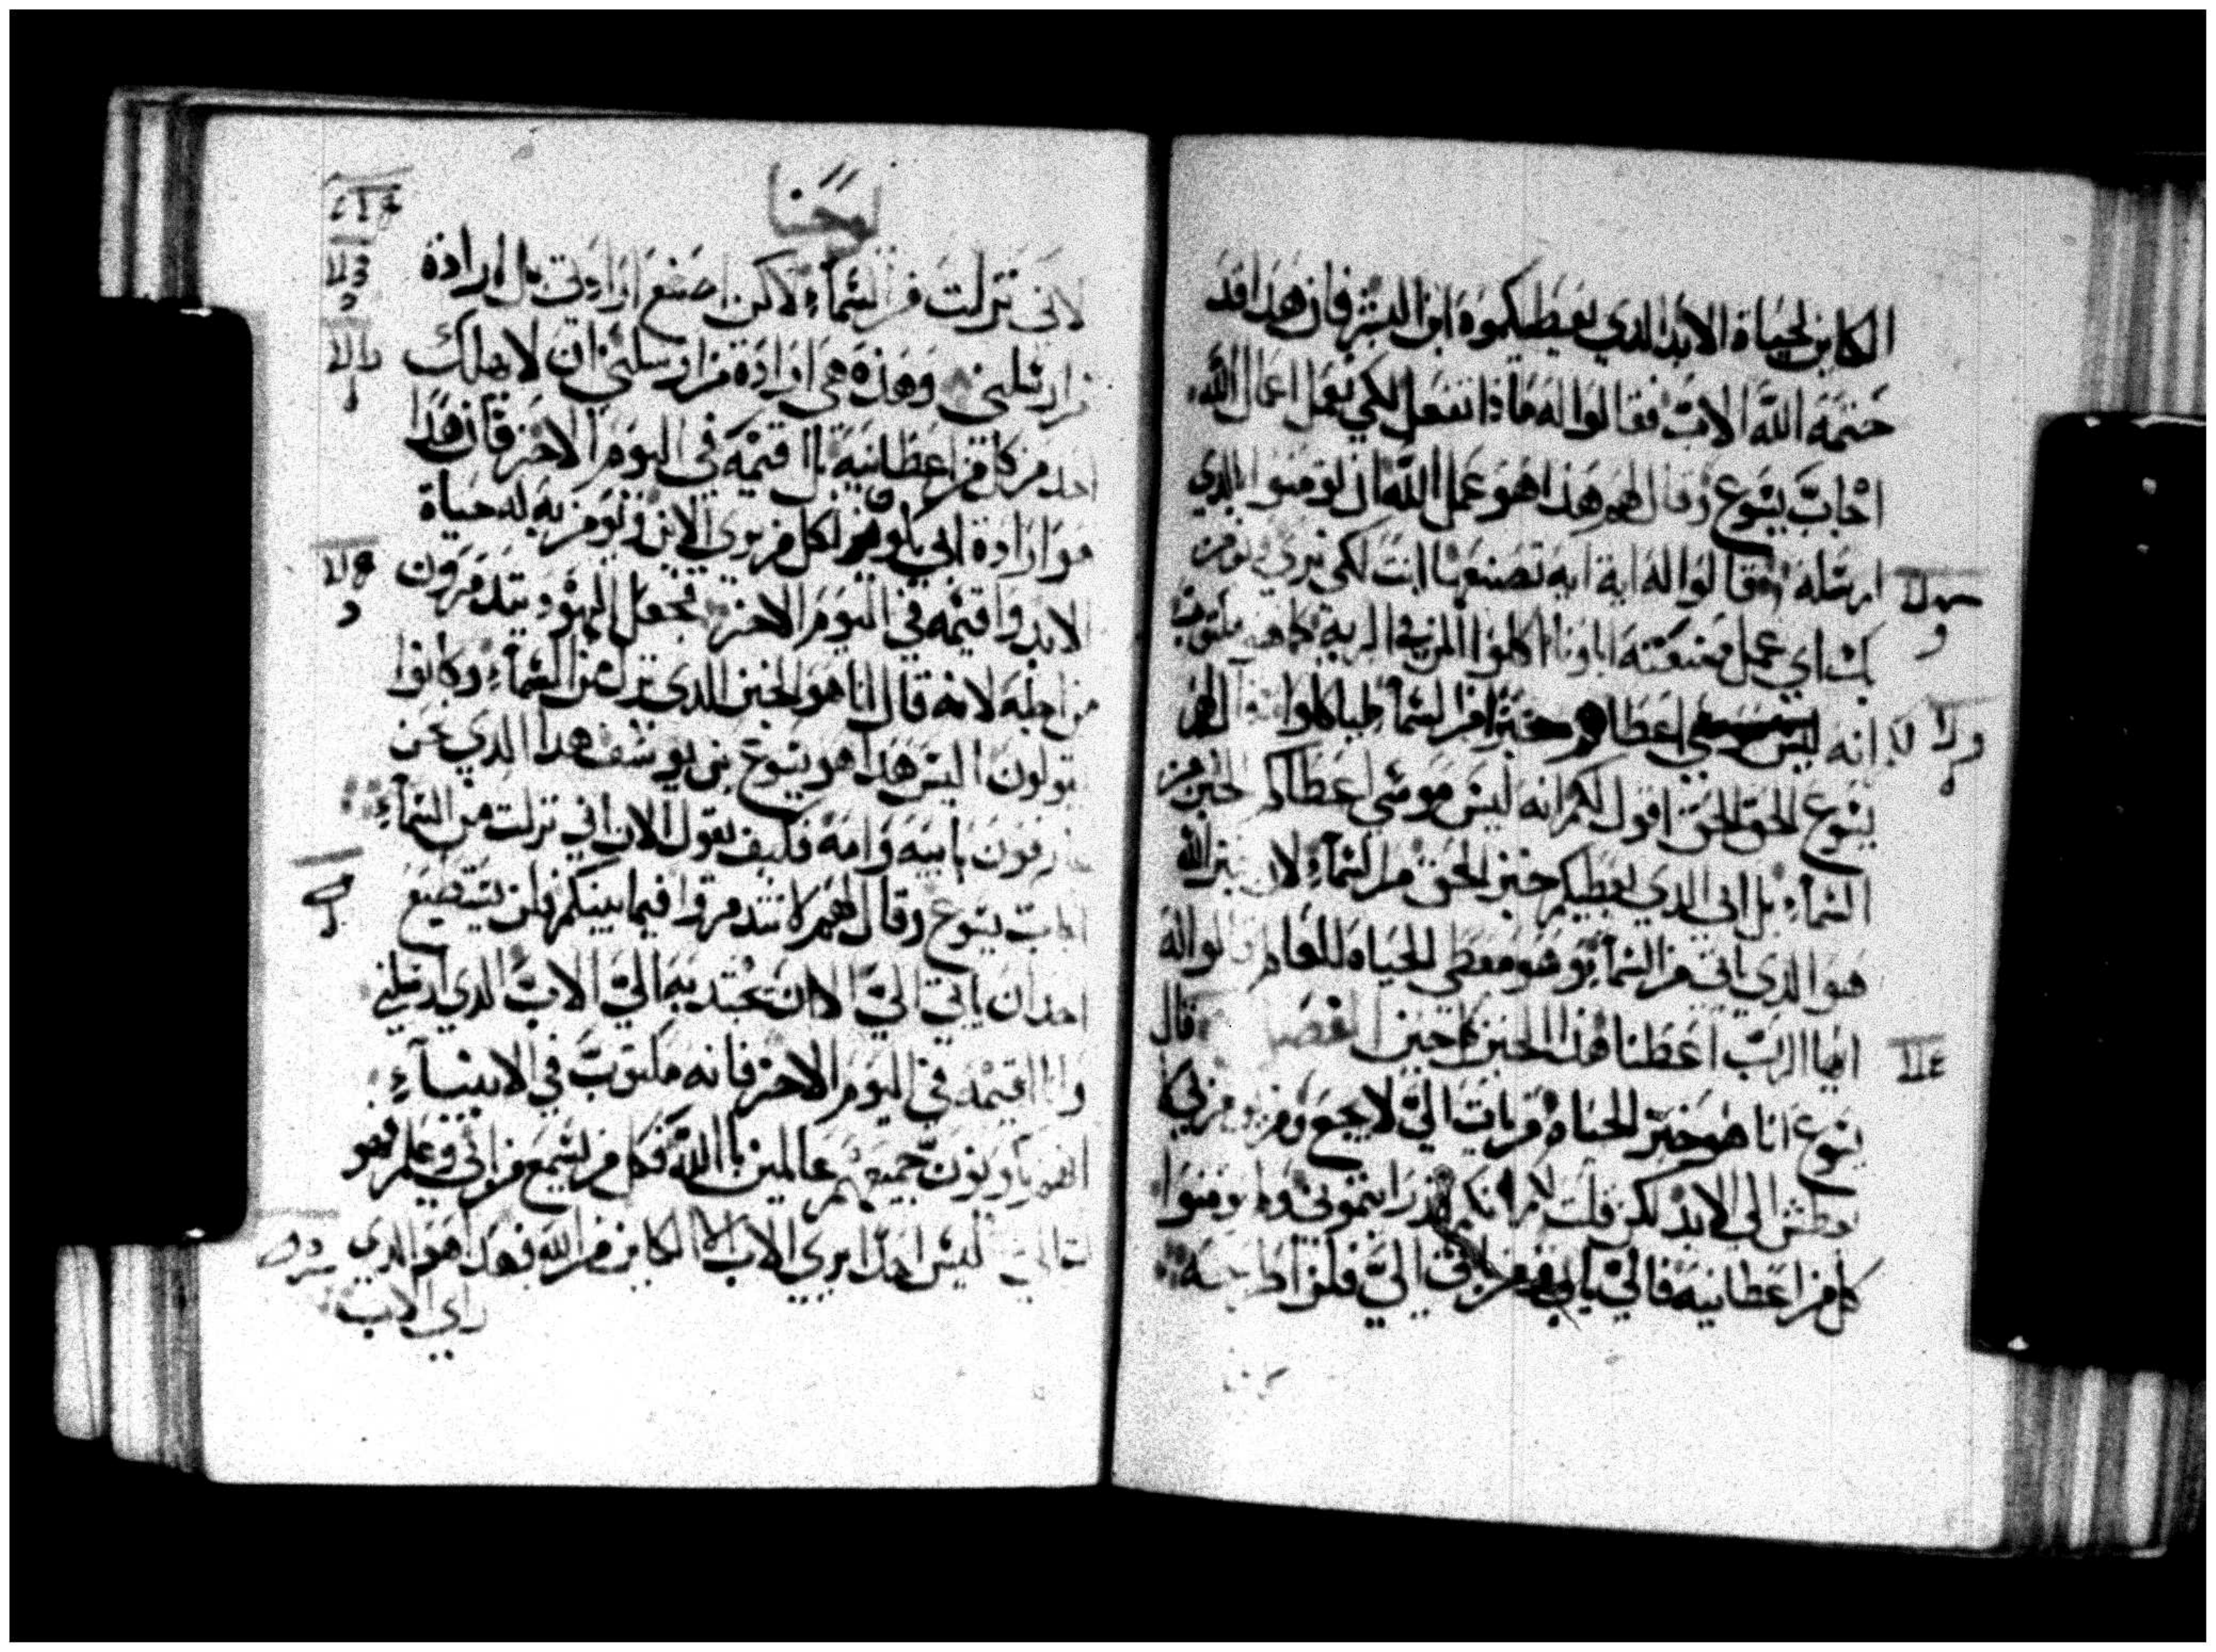 الكاين لحياة الابد الذي يعطيكموه ابن البشر فان هدا قد
ختمه الله الاب فقالوا له ماذا نفعل لكي نعمل اعمال الله
اجاب يسوع وقال لهم هذا هو عمل الله ان تومنوا بالذي
ارسله فقالوا له اية ايه تصنعها انت لكي نري ونومن
بك اي عمل صنعته اباونا اكلوا المن في البرية كما هو مكتوب
انه اعطاهم خبزا من السمآء لياكلوا قال لهم
يسوع الحق الحق اقول لكم انه ليس موسي اعطاكم الخبز من
السمآء بل ابي الدي يعطيكم خبز الحق من السمآء لان خبز الله
هوا الدي اتي من السمآ وهو معطي الحياه للعالم قالوا له
ايها الرب اعطنا هذا الخبز كل حين قال
يسوع انا هو خبز الحياة من يات الي لا يجع ومن يومن بي لا
يعطش الي الابد لكن قلت لكم انكم قد رايتموني ولم تومنوا
كل من اعطانيه فالي ياتي ومن ياتي الي فلن اطرحه
يوحنا
لاني نزلت من السمآء لاكن اصنع ارادتي بل ارادة
من ارسلني وهذه هي ارادة من ارسلني ان لا يهلك
احد من كل من اعطانيه بل اقيمه في اليوم الاخر فان هدا
هو ارادة ابي لكل من يري الابن ويومن به له حياة
الابد واقيمه في اليوم الاخر فجعل اليهود يتدمرون
من اجله لانه قال انا هو الخبز الدي نزل من السمآء وكانوا
يقولون اليس هدا هو يسوع بن يوسف هدا الدي نحن
عارفون بابيه وامه فكيف يقول الان اني نزلت من السمآء
اجاب يسوع وقال لهم لا تتدمروا فيما بينكم فلن يستطيع
احد ان ياتي الي الا ان تجتدبه الي الاب الدي ارسلني
وانا اقيمه في اليوم الاخر فانه مكتوب في الانبيآء
انهم يكونون جميعهم عالمين بالله فكل من يسمع من ابي وعلم فهو
ات الي ليس احدا يري الاب الا الكاين من الله فهدا هو الدي
راي الاب